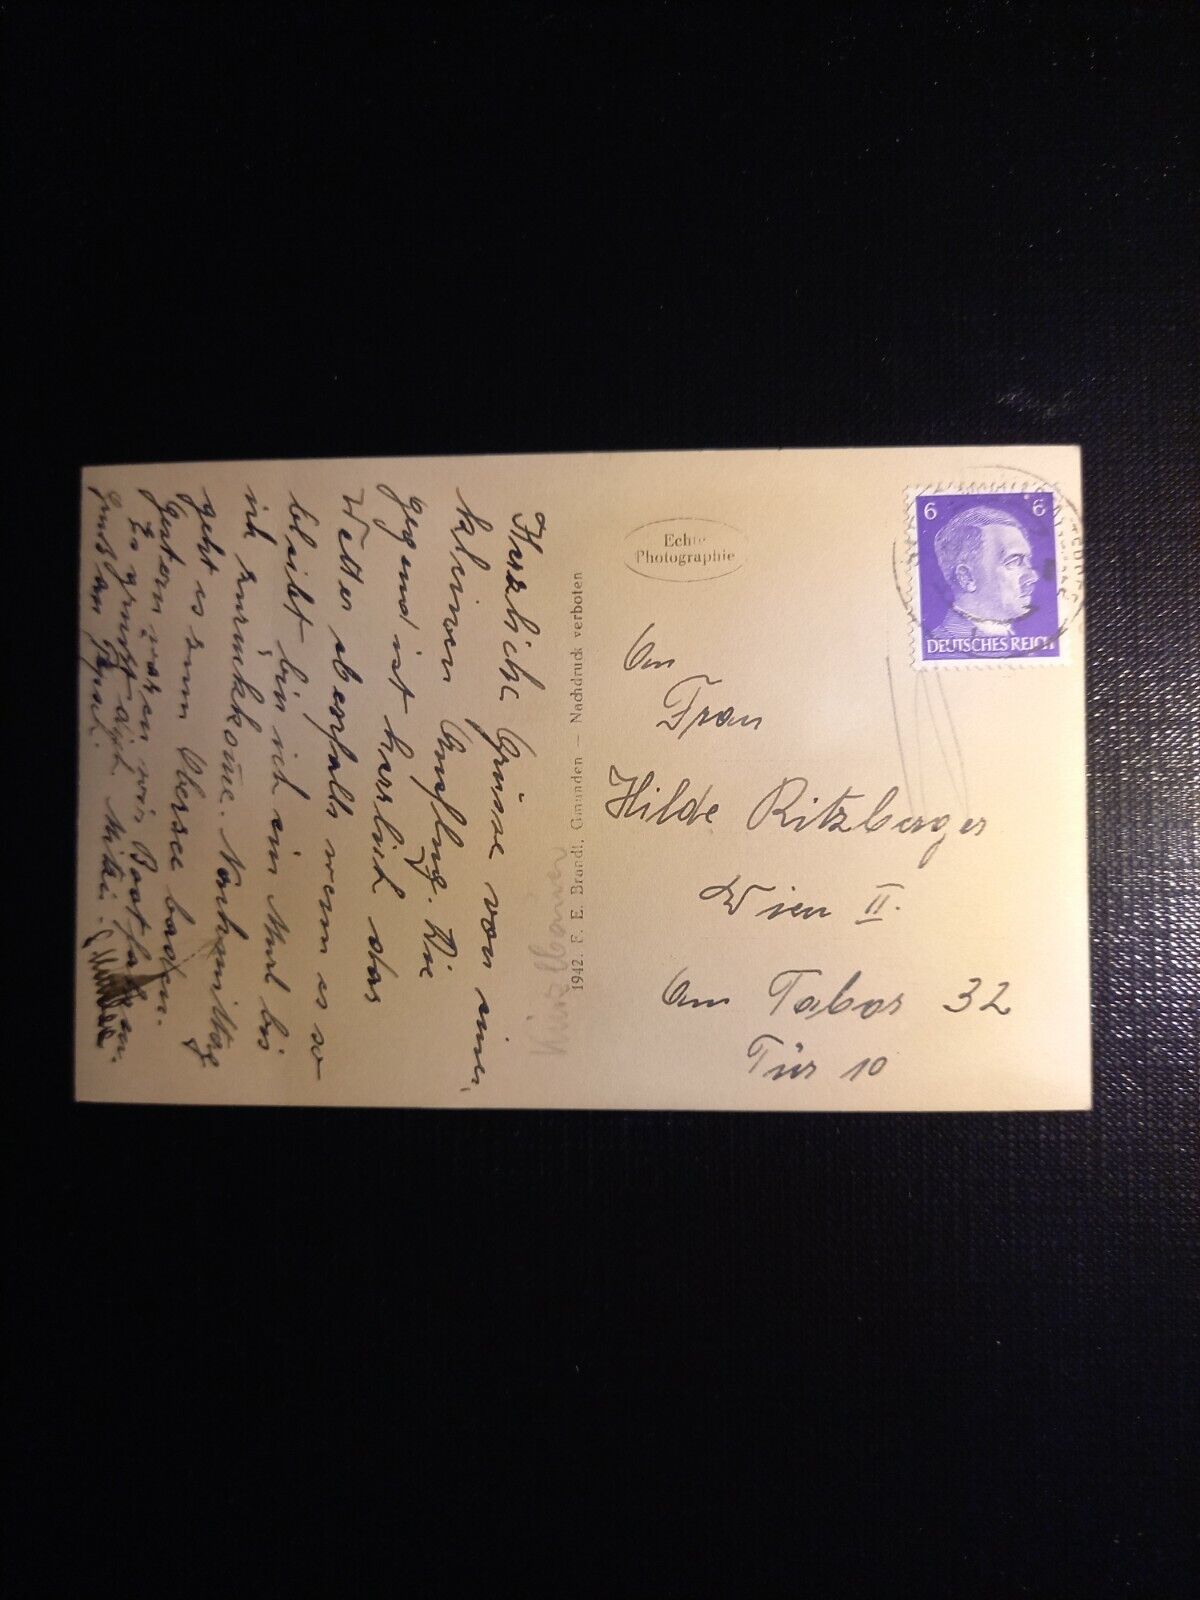 Herzliche Grüsse von einem
kleinen Ausflug. Die
gegend ist herrlich das
Wetter ebenfalls wenn es so
bleibt bin ich ein Murl bis
ich zurückkom̅e. Nachmittag
geht es zum Obersee baden.
Gestern waren wir Boot fahren.
Es grüsst dich Mitzi.
Gruß an
1942. F. E. Brandt, Gmunden — Nachdruck verboten
Echte
Photographie
6 6
DEUTSCHES REICH
An
Frau
Hilde Ritzberger
Wien II.
Am Tabor 32
Tür 10